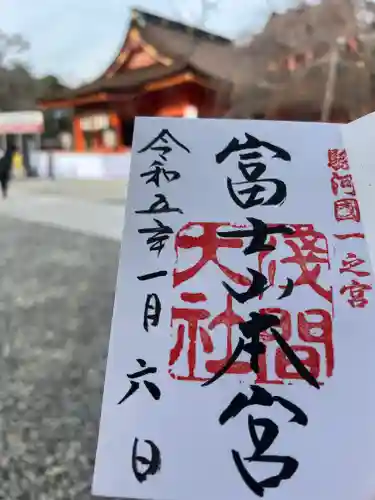 駿河国一之宮
富士山本宮
浅間
大社
令和五年一月六日